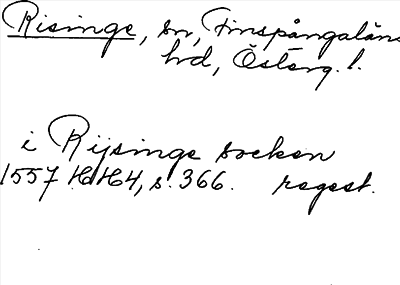 Risinge, sn, Finspångaläns
hd, Österg. l.
i Rijsinge socken
1557 HH4, s. 366. regest.